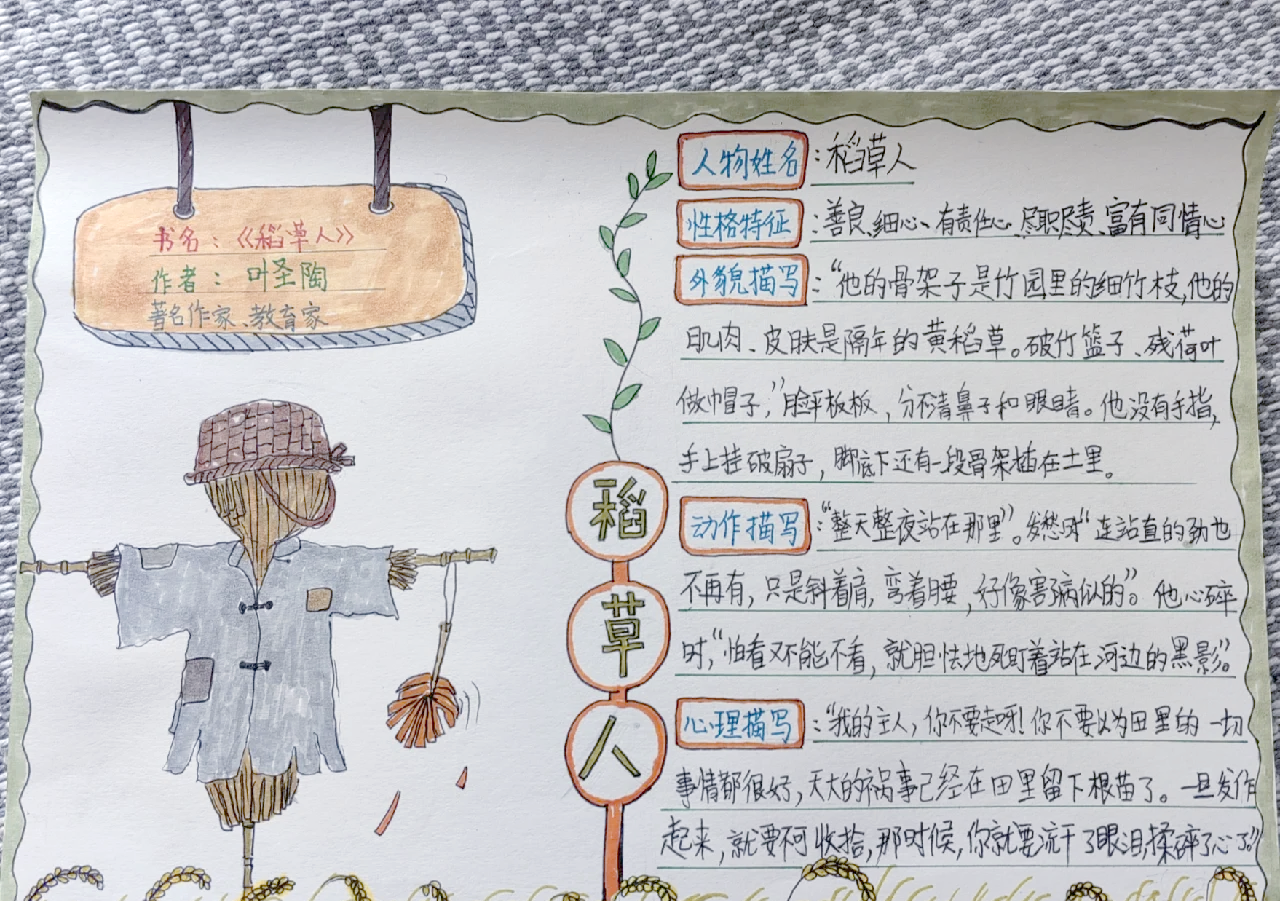 书名：《稻草人》
作者：叶圣陶
著名作家、教育家
稻草人
人物姓名：稻草人
性格特征：善良、细心、有责任心、尽职尽责、富有同情心
外貌描写：“他的骨架子是竹园里的细竹枝，他的
肌肉、皮肤是隔年的黄稻草。破竹篮子、残荷叶
做帽子，”脸平板板，分不清鼻子和眼睛。他没有手指，
手上挂破扇子，脚底下还有一段骨架插在土里。
动作描写：“整天整夜站在那里”。发愁时“连站直的劲也
不再有，只是斜着肩，弯着腰，好像害病似的”。他心碎
时，“怕看又不能不看，就胆怯地死盯着站在河边的黑影”。
心理描写：“我的主人，你不要走呀！你不要以为田里的一切
事情都很好，天大的祸事已经在田里留下根苗了。一旦发作
起来，就要不可收拾，那时候，你就要流干了眼泪，揉碎了心了。”